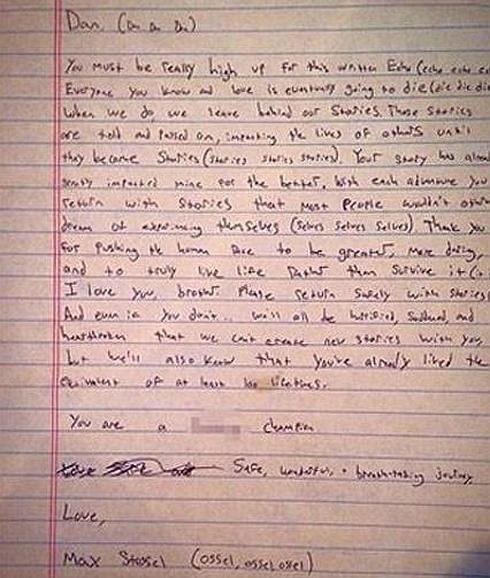 Dan, (an an an)
You must be really high up for this written Echo (echo echo ec
Everyone you know and love is eventually going to die (die die die
When we do, we leave behind our Stories. Those stories
are told and passed on, impacting the lives of others until
they become Stories (stories stories stories). Your story has alread
greatly impacted mine for the better. With each adventure you
return with stories that most people wouldn't other
dream of experiencing themselves (selves selves selves) Thank you
for pushing the human race to be greater, more daring,
and to truly live life rather than survive it (i
I love you, brother. Please return safely with stories
And even if you don't.. we'll all be horrified, saddened, and
heartbroken that we can't create new stories with you,
but we'll also know that you've already lived the
equivalent of at least 100 lifetimes.
You are a champion
Safe, wonderful, + breath-taking journey
Love,
Max Stossel (ossel, ossel ossel)